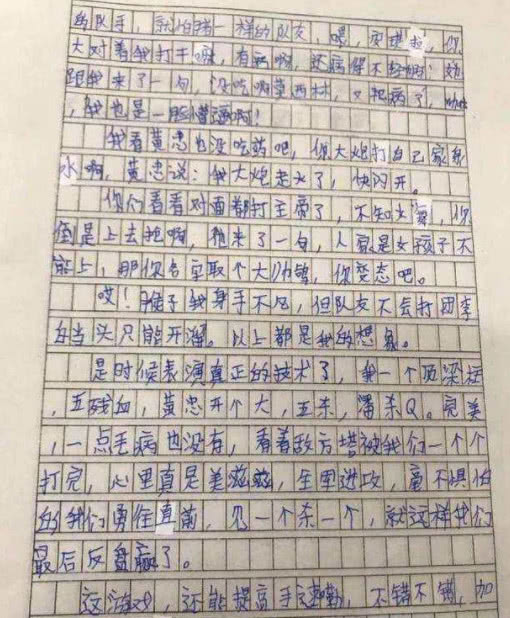 的队手，就怕猪一样的队友，喂，安琪拉，你
大对着我打干嘛，有病啊，还病得不轻啊！她
跟我来了一句，没吃啊莫西林，又犯病了，
，我也是一脸懵逼啊！
我看黄忠也没吃药吧，你大炮打自己家泉
水啊，黄忠说：我大炮走火了，快闪开。
你们看看对面都打主宰了，不知火舞，你
倒是上去抢啊，他来了一句，人家是女孩子不
能上，那你名字取个大帅锅，你变态吧。
哎！猴子我身手不凡，但队友不会打团李
白当头只能开溜。以上都是我的想象。
是时候表演真正的技术了，我一个顶梁柱
，五残血，黄忠开个大，五杀，潘杀Q。完美
，一点毛病也没有，看着敌方塔被我们一个个
打完，心里真是美滋滋，全里进攻，毫不惧怕
的我们勇往直前，见一个杀一个，就这样我们
最后反盘赢了。
这游戏，还能提高手速嘞，不错不错，加